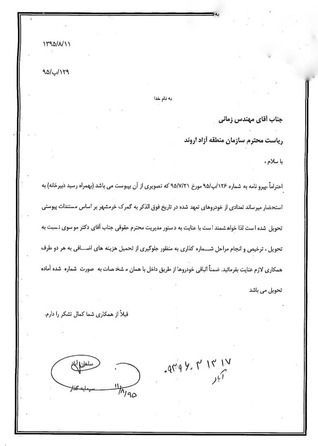 ۱۳۹۵/۸/۱۱
۹۵/پ/۱۲۹
به نام خدا
جناب آقای مهندس زمانی
ریاست محترم سازمان منطقه آزاد اروند
با سلام ،
احتراماً پیرو نامه به شماره ۹۵/پ/۱۲۶ مورخ ۹۵/۷/۲۱ که تصویری از آن بپیوست می باشد (بهمراه رسید دبیرخانه) به
استحضار میرساند تعدادی از خودروهای تعهد شده در تاریخ فوق الذکر به گمرک خرمشهر بر اساس مستندات پیوستی
تحویل شده است لذا خواهشمند است با عنایت به دستور مدیریت محترم حقوقی جناب آقای دکتر موسوی نسبت به
تحویل ، ترخیص و انجام مراحل شماره گذاری به منظور جلوگیری از تحمیل هزینه های اضافی به هر دو طرف
همکاری لازم عنایت بفرمائید. ضمناً الباقی خودروها از طریق داخل با همان مشخصات به صورت شماره شده آماده
تحویل می باشد
قبلاً از همکاری شما کمال تشکر را دارم.
سرمایه گذار
۱۱/۸/۹۵